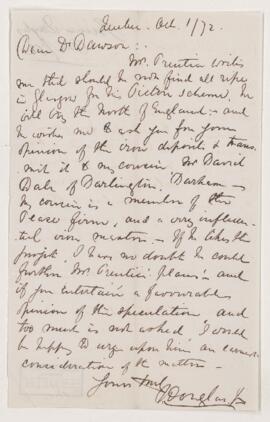 Quebec Oct. 1/72.
Dear Dr Dawson:
Mr. Prentice writes
me that should he not find all ripe
in Glasgow for his Pictou scheme, he
will try the North of England: and
he wishes me to ask you for your
opinion of the iron deposits & trans
mit it to my cousin, Mr David
Dale of Darlington, Durham —
My cousin is a member of the
Pease firm, and a very influen-
tial iron master — If he likes the
project, I have no doubt he could
further Mr. Prentice's plans: and
if you entertain a favourable
opinion of the speculation, and
too much is not asked, I would
be happy to urge upon him an earnest
consideration of the matter —
Yours truly
J Douglas Jr